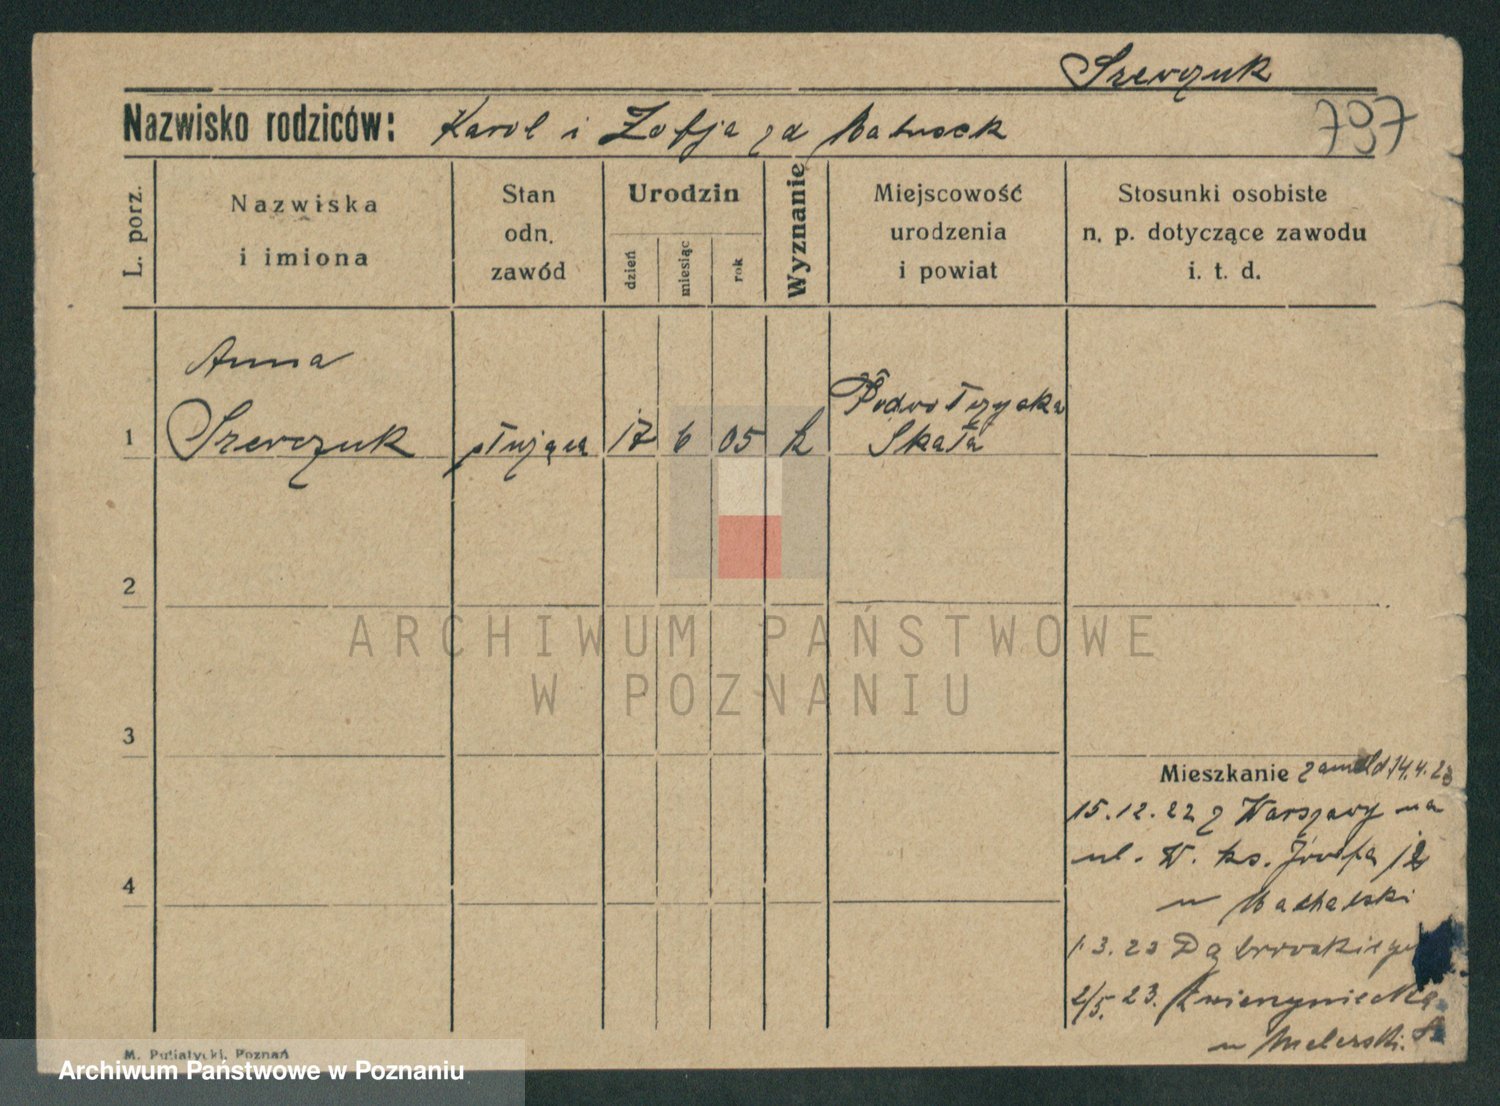 Szewczuk
Nazwisko rodziców: Karol i Zofja zd
797
L. porz.
Nazwiska
i imiona
Stan
odn.
zawód
Urodzin
dzień
miesiąc
rok
Wyznanie
Miejscowość
urodzenia
i powiat
Stosunki osobiste
n. p. dotyczące zawodu
i. t. d.
Anna
1 Szewczuk służąca 17 6 05 k
Skała
2
3
4
ARCHIWUM PAŃSTWOWE
W POZNANIU
Mieszkanie zameld 14.4.23
15.12.22 z Warszawy na
ul. W. ks. Józefa 12
u
1 3.23 Dąbrowskiego
2/5.23. Zwierzyniecka
u
M. Putiatycki, Poznań
Archiwum Państwowe w Poznaniu